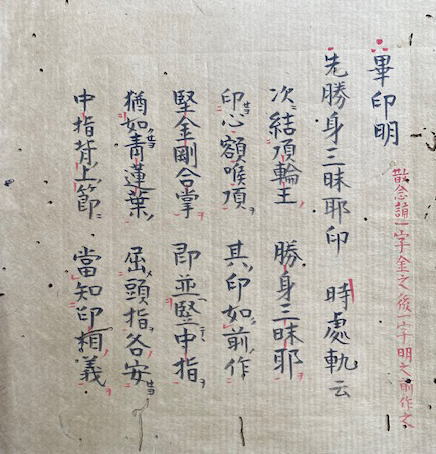 畢印明
散念誦一字金之後一字明之前作之
先勝身三昧耶印 時處軌云
次結頂輪王 勝身三昧耶
印心額喉頂 其印如前作
堅金剛合掌 即並竪中指
猶如青蓮葉 屈頭指各安
中指背上節 當知印相義